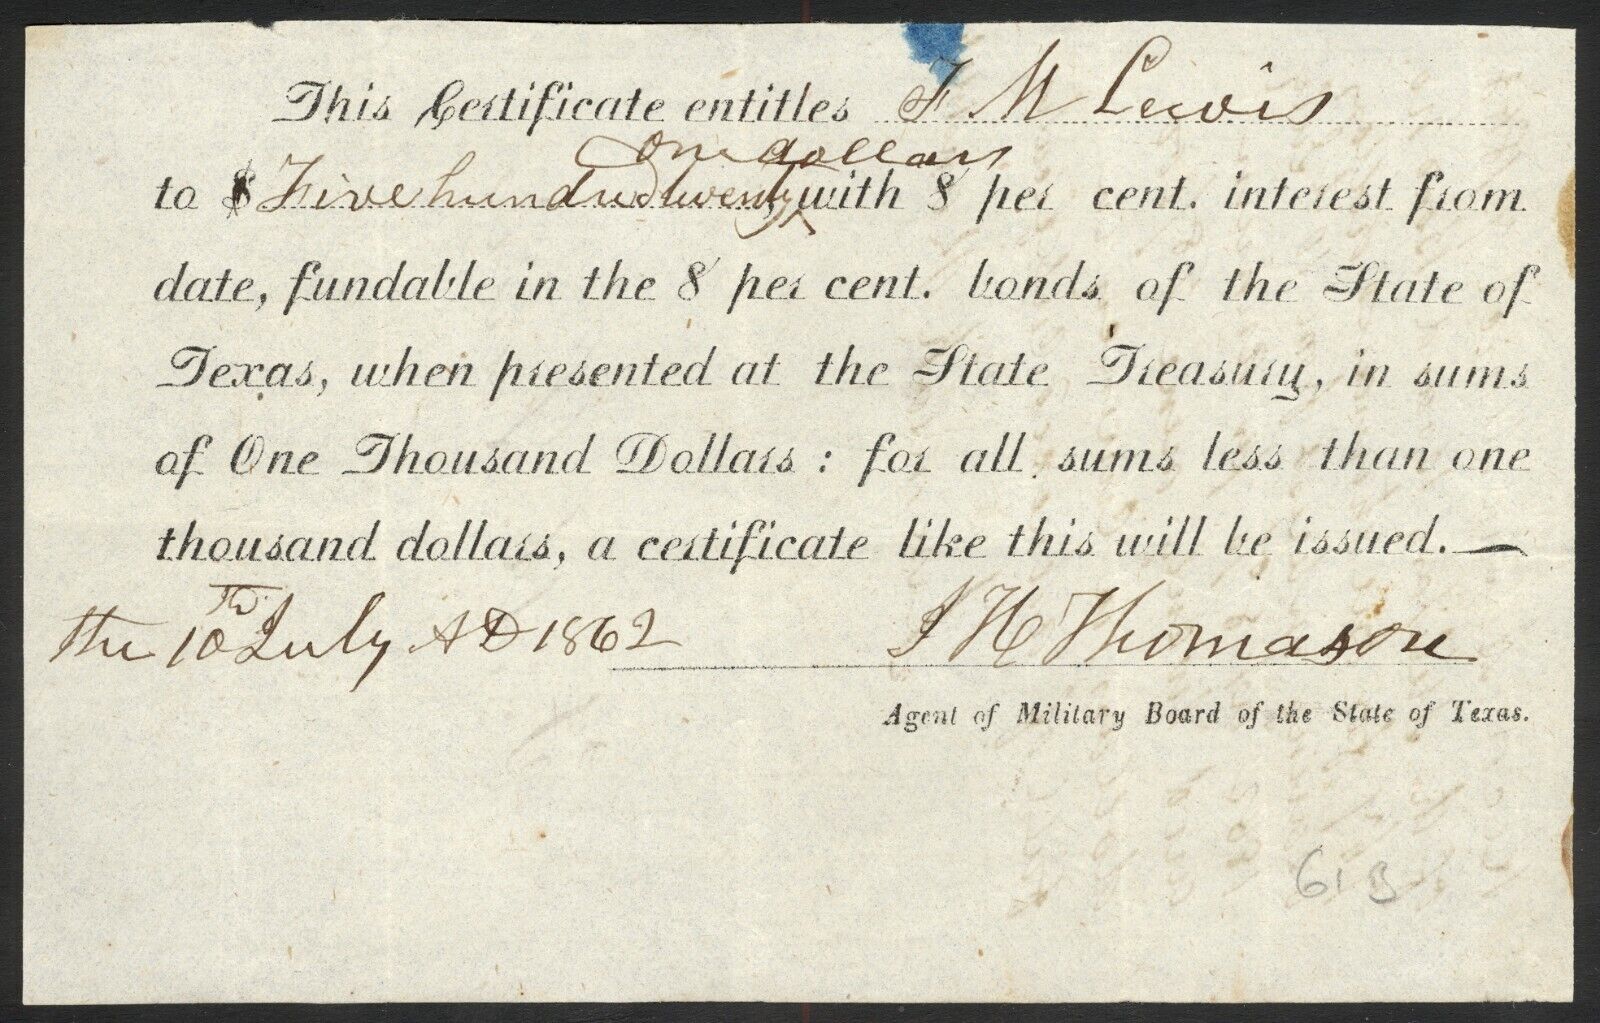 This Certificate entitles F. M Lewis
One dollars
to $ Five hundred twenty, with 8 per cent. interest from
date, fundable in the 8 per cent. bonds of the State of
Texas, when presented at the State Treasury, in sums
of One Thousand Dollars : for all sums less than one
thousand dollars, a certificate like this will be issued.—
the 10th July AD 1862 J H Thomason
Agent of Military Board of the State of Texas.
61 B